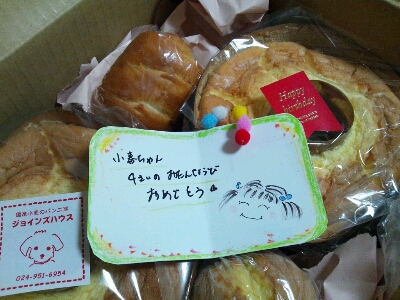 Happy
birthday
小春ちゃん
4さいの おたんじょうび
おめでとう
国産小麦のパン工房
ジョインズハウス
024-951-6954